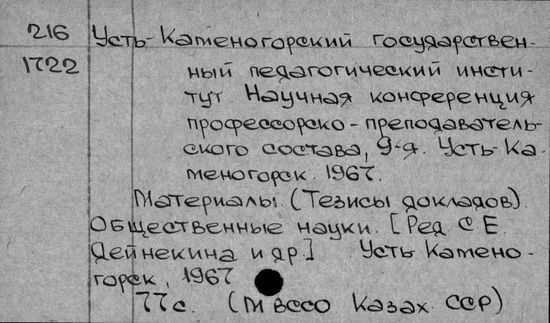 216 Усть-Каменогорский государствен-
1722 ный педагогический инсти-
тут. Научная конференция
профессорско-преподаватель-
ского состава, 9-я. Усть-Ка-
меногорск. 1967.
Материалы. (Тезисы докладов).
Общественные науки. [Ред С Е.
Дейнекина и др.] Усть Камено-
горск, 1967
77с. (М ВССО Казах. ССР)